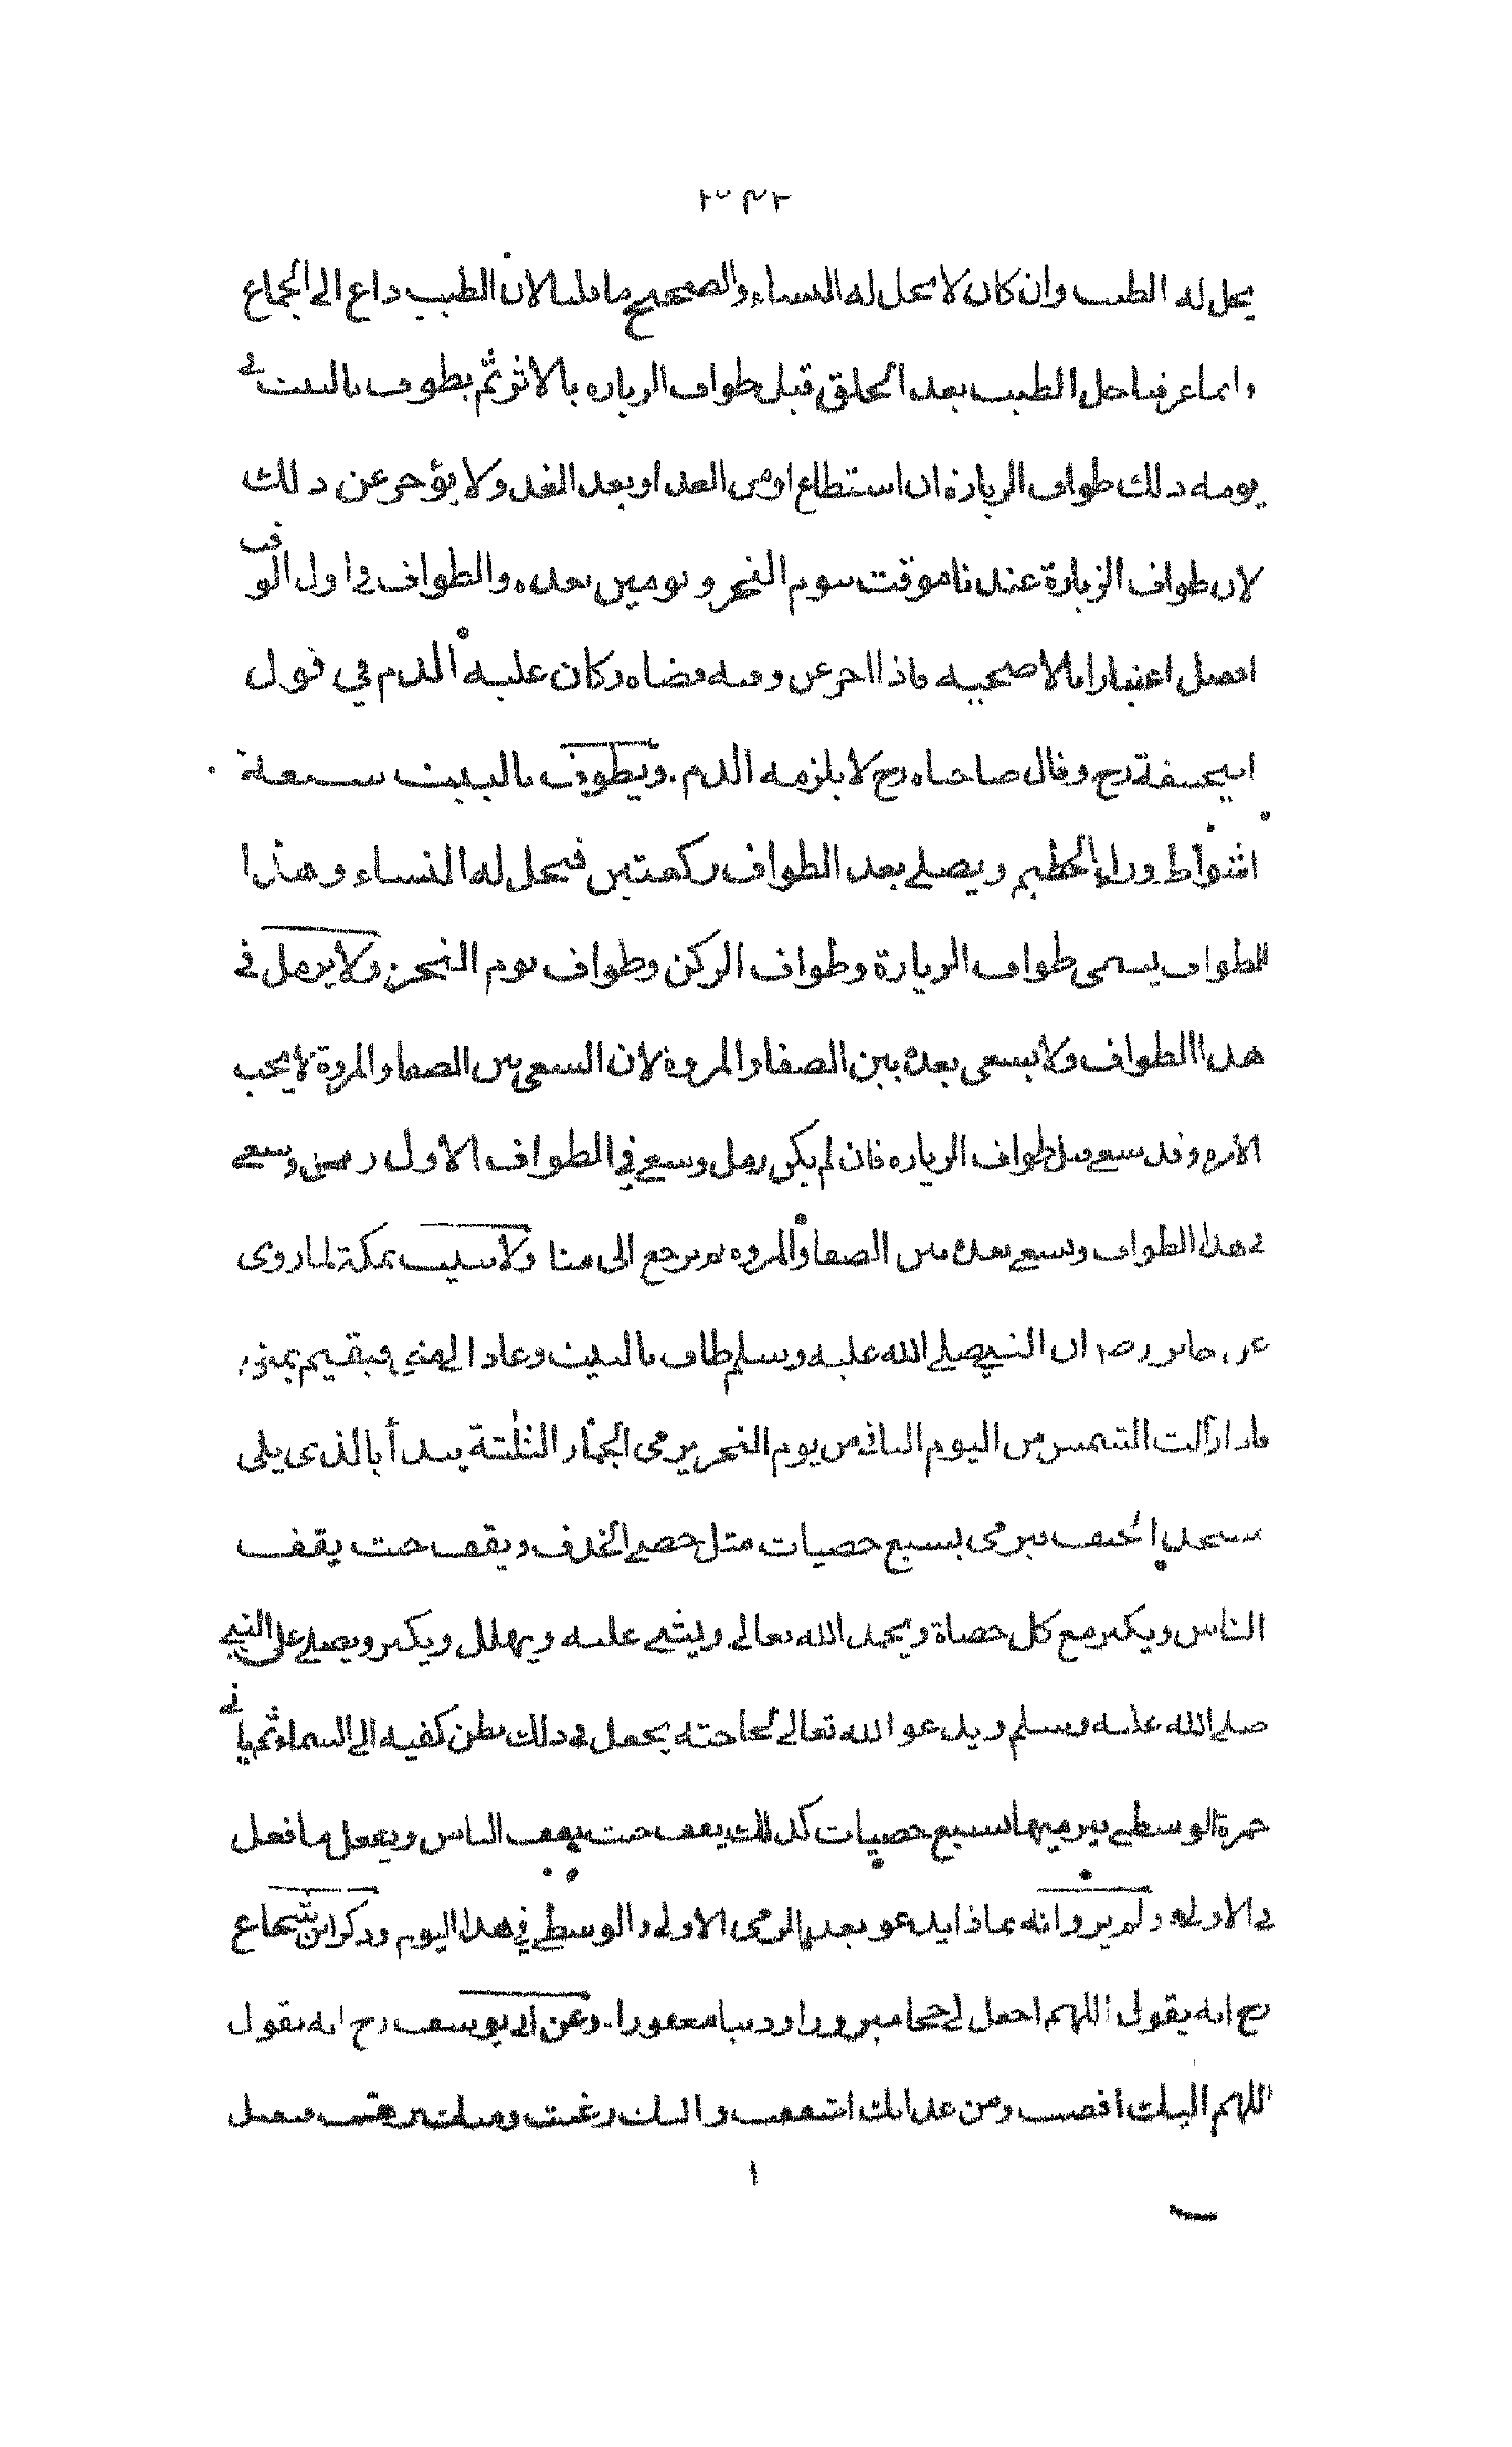 ٣٤٢
يحل له الطيب وان كان لا يحل له النساء والصحيح ما قلنا لان الطيب داع الى الجماع
وانما عرفنا حل الطيب بعد الحلق قبل طواف الزياره بالاثر ثم يطوف بالبيت في
يومه ذلك طواف الزيارة ان استطاع او من الغد او بعد الغد ولا يؤخر عن ذلك
لان طواف الزيارة عندنا موقت بيوم النحر ويومين بعده والطواف في اول الوقت
افضل اعتبارا بالاضحيه فاذا اخر عن وقته قضاه وكان عليه الدم في قول
ابيحنيفة رح وقال صاحباه رح لا يلزمه الدم. ويطوف بالبيت سبعة
اشواط وراء الحطيم ويصلي بعد الطواف ركعتين فيحل له النساء وهذا
الطواف يسمى طواف الزيارة وطواف الركن وطواف يوم النحر ولا يرمل في
هذا الطواف ولا يسعى بعده بين الصفا والمروة لان السعي بين الصفا والمروة لا يجب
الا مره وقد سعى قبل طواف الزياره فان لم يكن رمل وسعى في الطواف الاول رمل وسعى
في هذا الطواف ويسعى بعده بين الصفا والمروه ثم يرجع الى منا ولا يبيت بمكة لما روى
عن جابر رضـ ان النبي صلى الله عليه وسلم طاف بالبيت وعاد الى منى فيقيم بمنى
فاذا زالت الشمس من اليوم الثاني من يوم النحر يرمى الجمار الثلثة يبدأ بالذى يلى
مسجد الخيف فيرمى بسبع حصيات مثل حصى الخذف ويقف حيث يقف
الناس ويكبر مع كل حصاة ويحمد الله تعالى ويثنى عليه ويهلل ويكبر ويصلى على النبي
صلى الله عليه وسلم ويدعو الله تعالى لحاجته يجعل في ذلك بطن كفيه الى السماء ثم يأتي
جمرة الوسطى فيرميها بسبع حصيات كذلك يقف حيث يقف الناس ويفعل ما فعل
في الاولى ولم يروانه بماذا يدعو بعد الرمى الاولى والوسطى في هذا اليوم وذكر ابن شجاع
رح انه يقول اللهم اجعل لي حجا مبرورا وذنبا مغفورا. وعن ابي يوسف رح انه يقول
اللهم اليك افضت ومن عذابك اشفقت واليك رغبت ومنك رهبت فتقبل